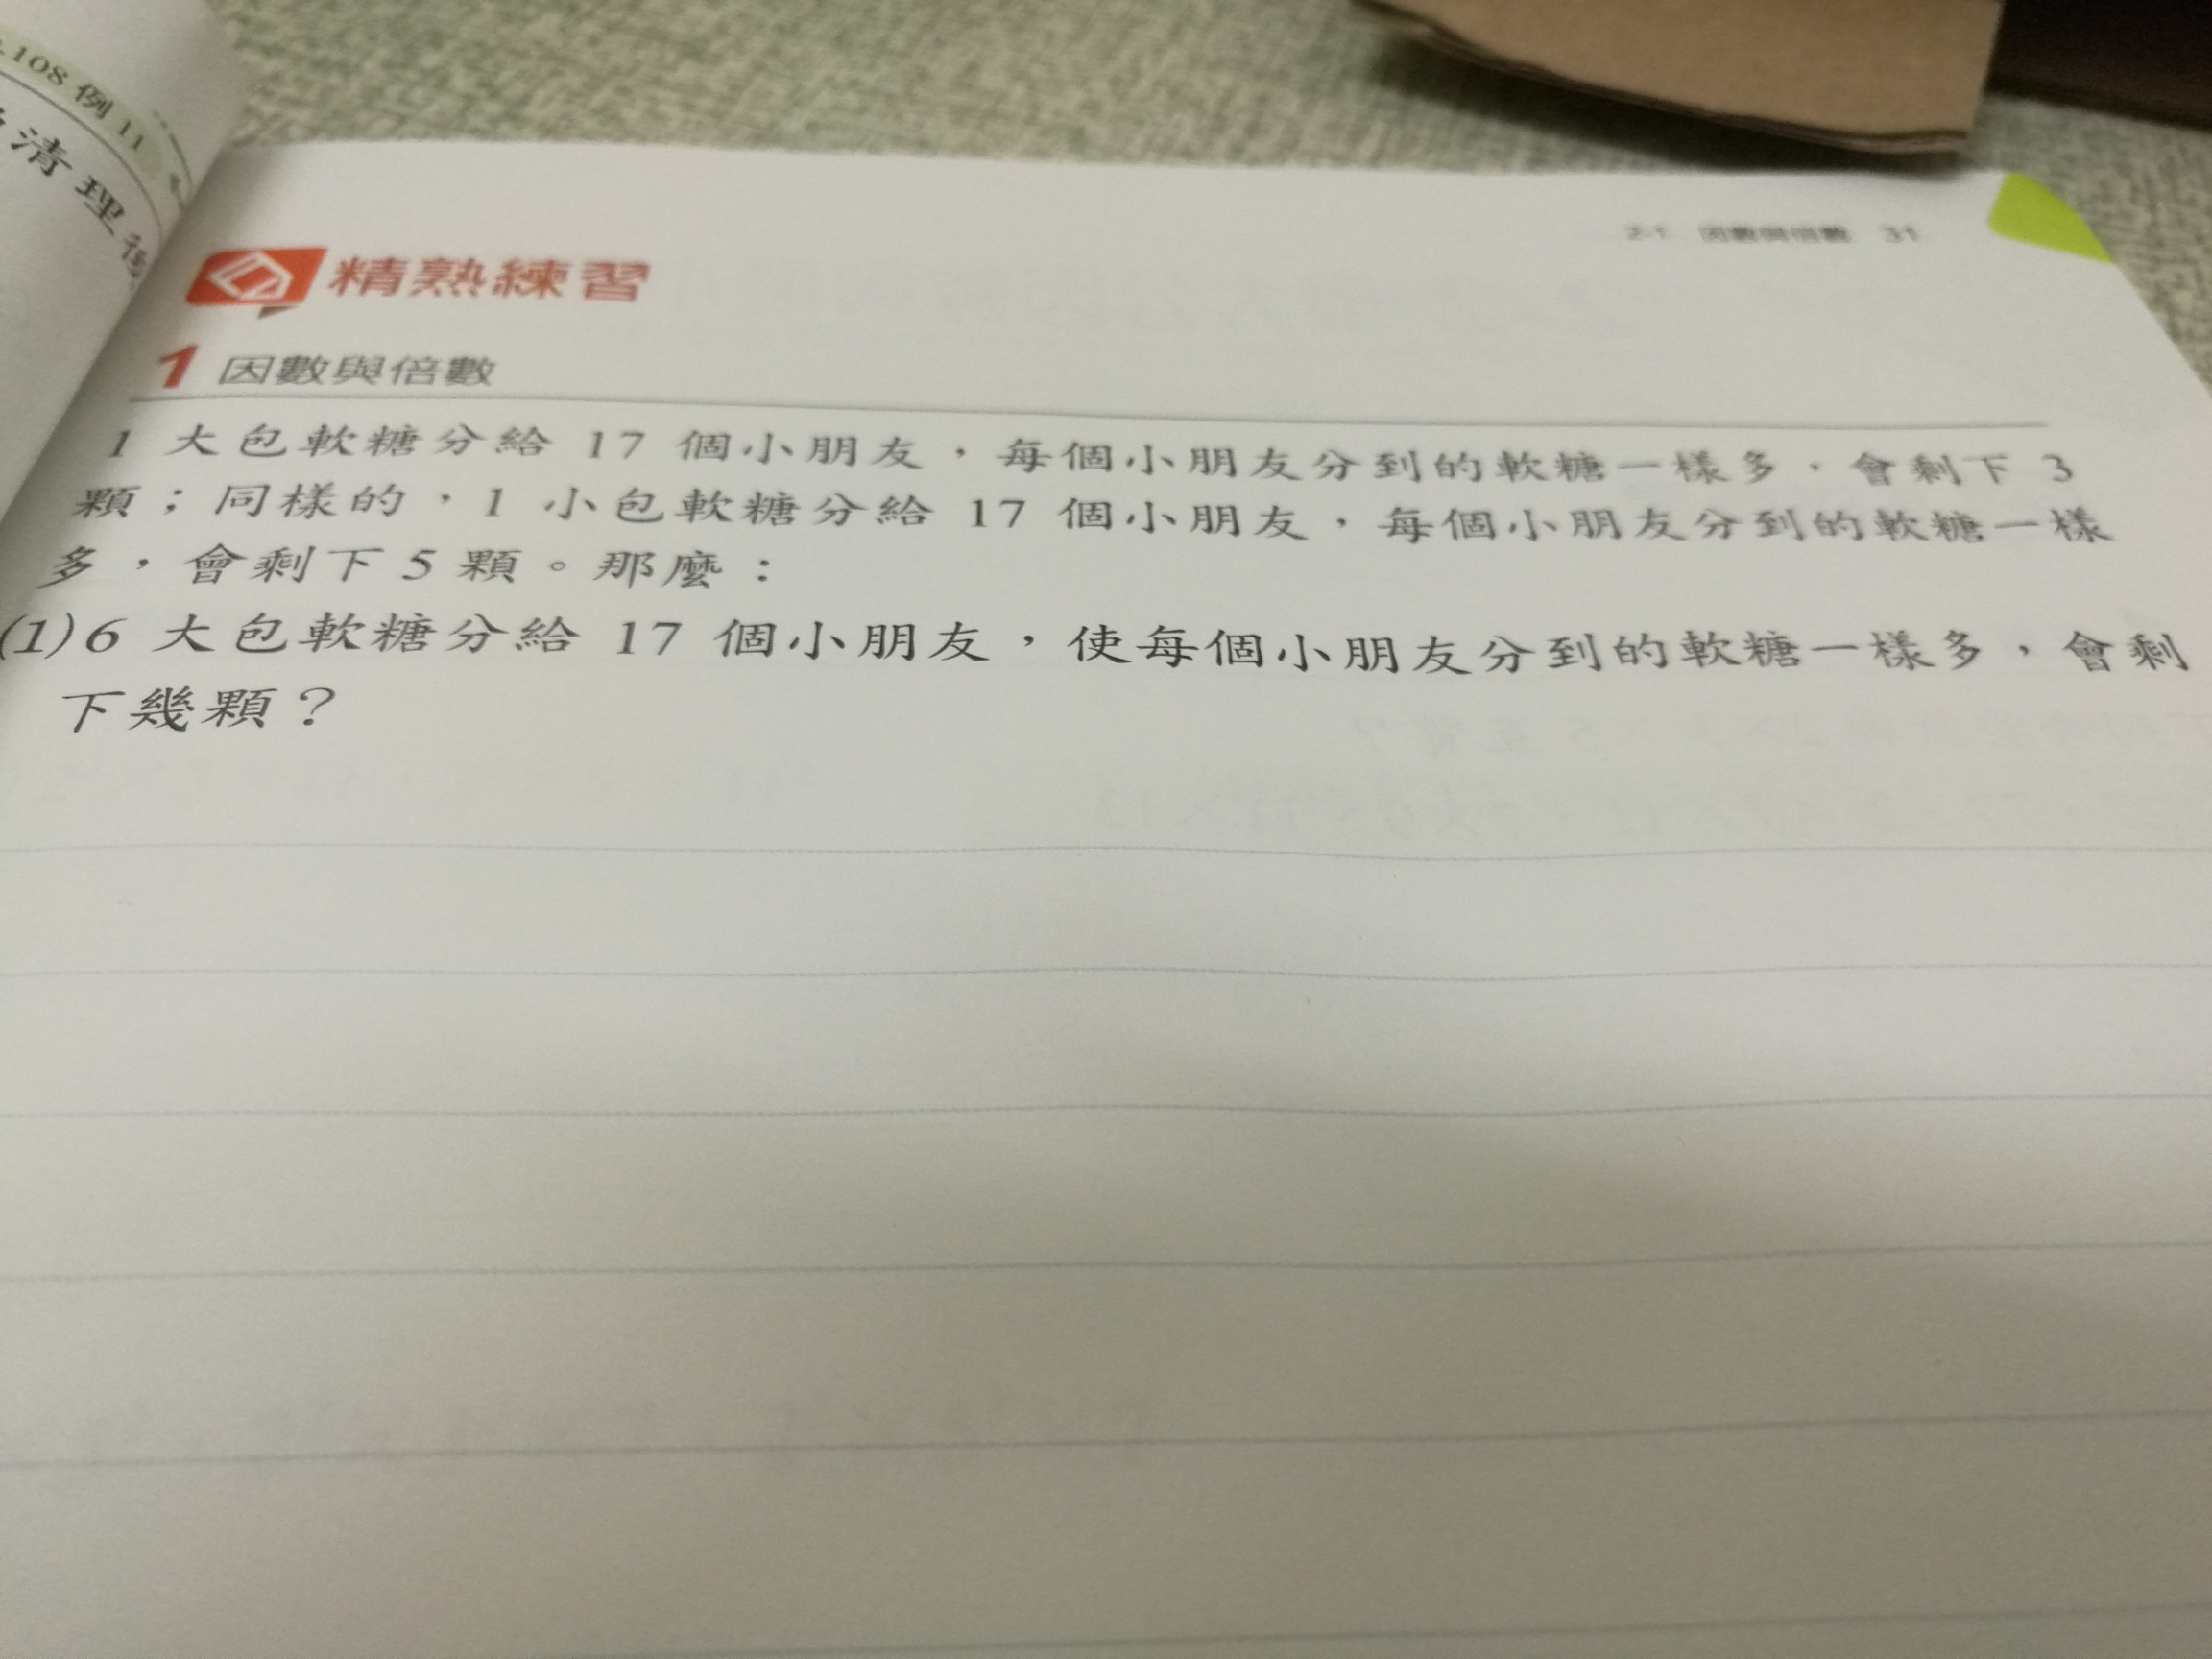 108 例 11
清理
2-1 因數與倍數 31
精熟練習
1 因數與倍數
1 大包軟糖分給 17 個小朋友，每個小朋友分到的軟糖一樣多，會剩下 3
顆；同樣的，1 小包軟糖分給 17 個小朋友，每個小朋友分到的軟糖一樣
多，會剩下 5 顆。那麼：
(1)6 大包軟糖分給 17 個小朋友，使每個小朋友分到的軟糖一樣多，會剩
下幾顆？